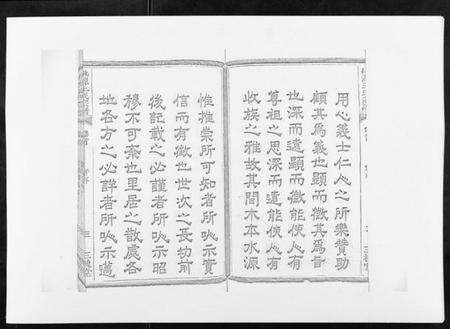 用心義士仁人之所樂贊助
顧其為義也顯而微其為旨
也深而遠顯而微能使人有
尊祖之思深而遠能使人有
收族之雅故其間木本水源
惟推崇所可知者所以示實
信而有徵也世次之長幼前
後記載之必謹者所以示昭
穆不可紊也里居之散處各
地各方之必詳者所以示遠